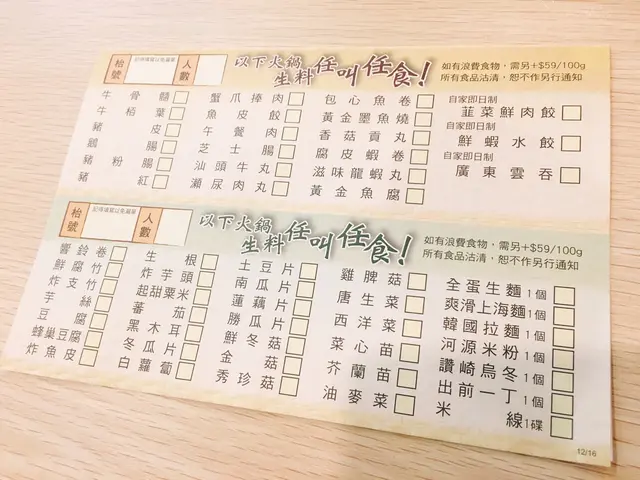 枱號
記得填寫以免漏單
人數
以下火鍋生料任叫任食!
如有浪費食物，需另+$59/100g
所有食品沽清，恕不作另行通知
牛骨髓
牛栢葉
豬皮
鵝腸
豬粉腸
豬紅
蟹爪捧肉
魚皮餃
午餐肉
芝士腸
汕頭牛丸
瀨尿肉丸
包心魚卷
黃金墨魚燒
香菇貢丸
腐皮蝦卷
滋味龍蝦丸
黃金魚腐
自家即日制
韮菜鮮肉餃
自家即日制
鮮蝦水餃
自家即日制
廣東雲吞
枱號
記得填寫以免漏單
人數
以下火鍋生料任叫任食!
如有浪費食物，需另+$59/100g
所有食品沽清，恕不作另行通知
響鈴卷
鮮竹
炸支竹
芋絲
豆腐
蜂巢豆腐
炸魚皮
生根
炸芋頭
起甜粟米
蕃茄
黑木耳
冬瓜片
白蘿蔔
土豆片
南瓜片
蓮藕片
勝瓜
鮮冬菇
金菇
秀珍菇
雞脾菇
唐生菜
西洋菜
菜心苗
芥蘭苗
油麥菜
全蛋生麵1個
爽滑上海麵1個
韓國拉麵1個
河源米粉1個
讚崎烏冬1個
出前一丁1個
米線1碟
12/16